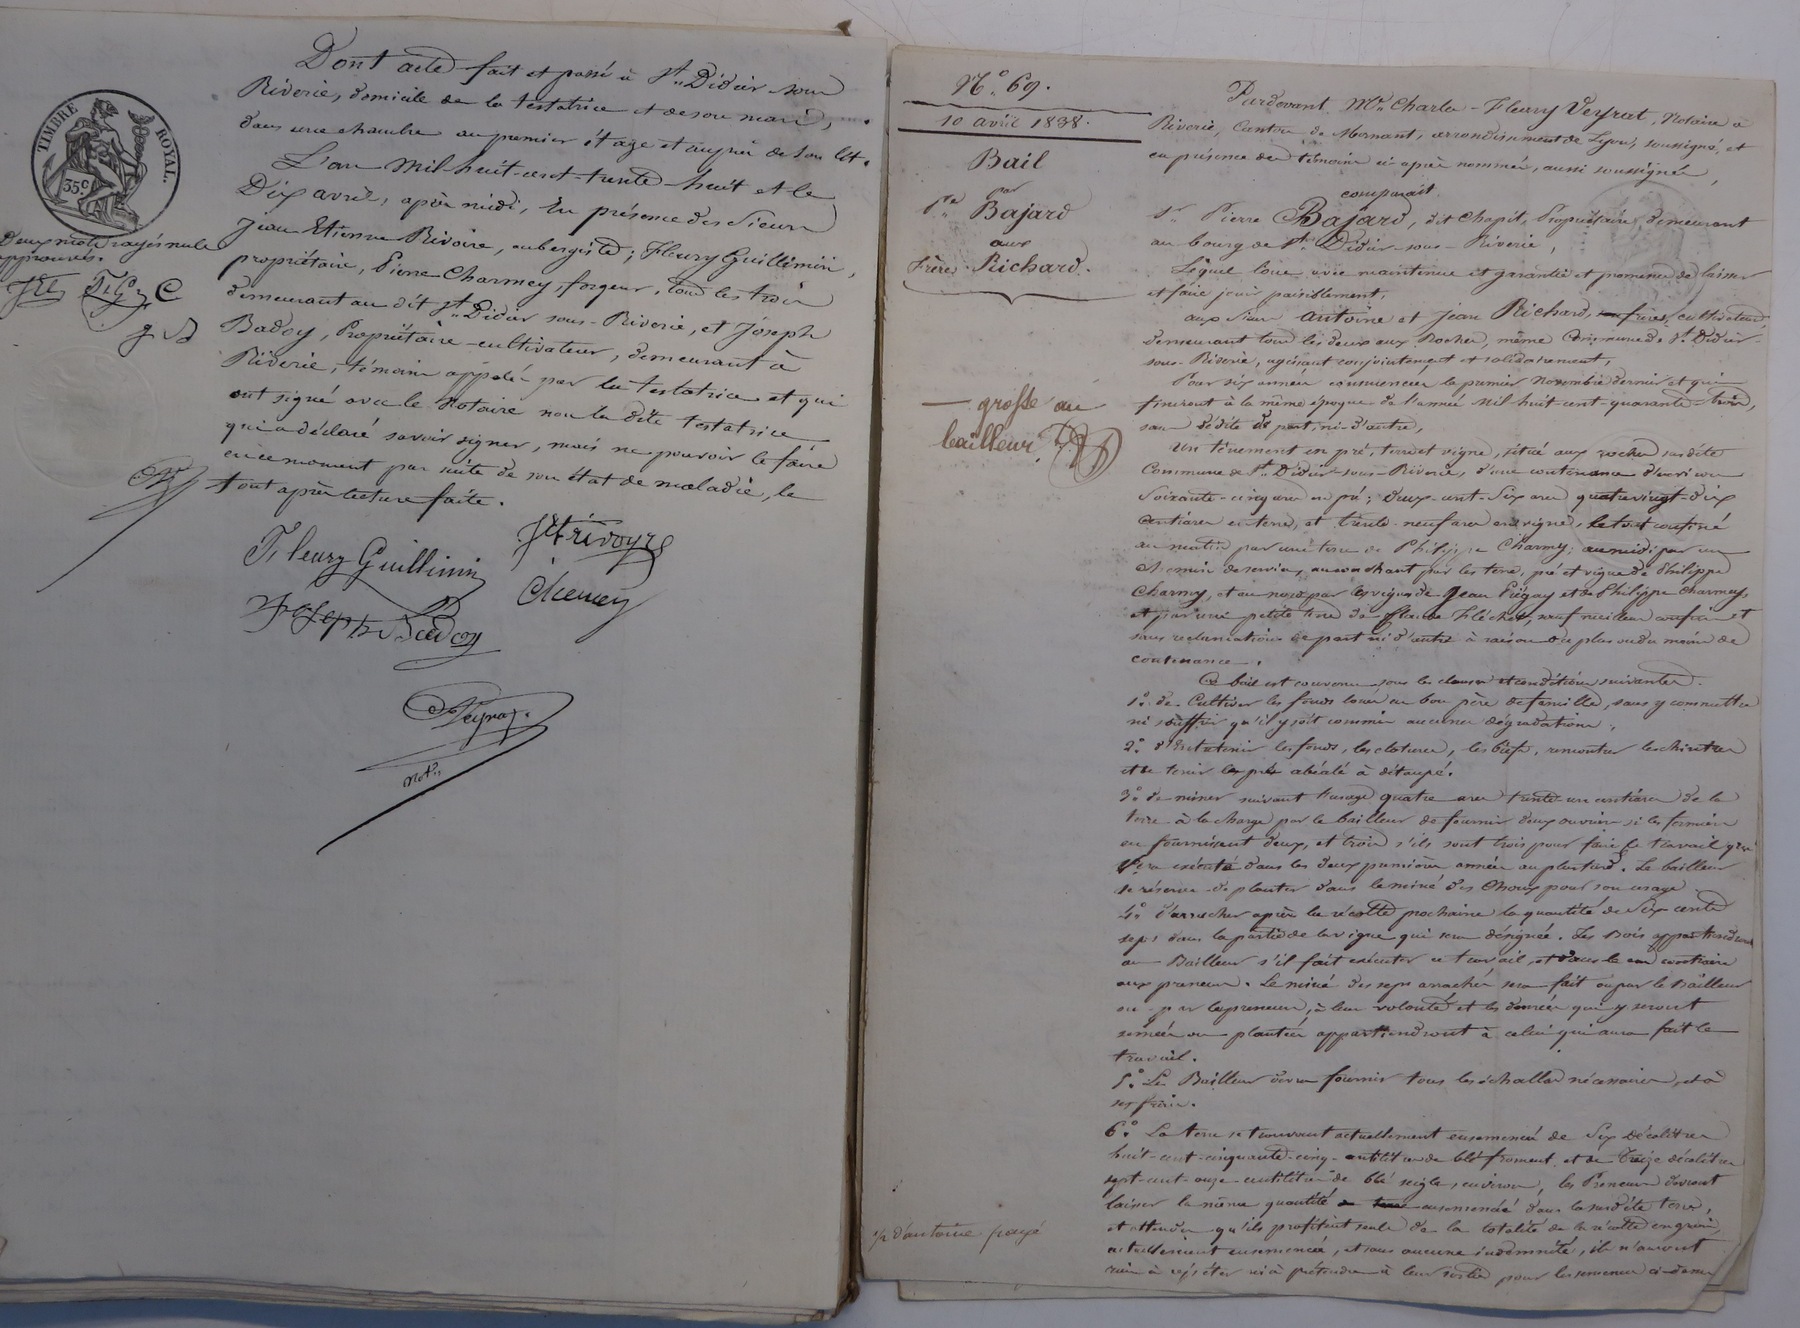 Dont acte fait et passé à St. Didier sous
Riverie, domicile de la testatrice et de son mari,
dans une chambre au premier étage et auprès de son lit.
L'an mil-huit-cent-trente-huit et le
Dix avril, après midi, En présence des Sieurs
Jean Etienne Rivoire, aubergiste; Fleury Guillimin,
propriétaire, Pierre Charmey, forgeur, tous les trois
demeurant au dit St. Didier sous-Riverie, et Joseph
Badoy, Propriétaire-cultivateur, demeurant à
Riverie, témoins appelés par la testatrice et qui
ont signé avec le Notaire non la dite testatrice
qui a déclaré savoir signer, mais ne pouvoir le faire
en ce moment par suite de son état de maladie, le
tout après lecture faite.
TIMBRE ROYAL.
35 c.
Deux mots rayés nuls
approuvés.
Fleury Guillimin
Joseph Badoy
Veyrat.
Not.
N° 69.
10 avril 1838.
Bail
par
Pre Bajard
aux
frères Richard.
— grosse au
bailleur
1/2 d'antoine payé
Pardevant Me Charles-Fleury Veyrat, Notaire à
Riverie, Canton de Mornant, arrondissement de Lyon, soussigné, et
en présence des témoins ci-après nommés, aussi soussignés,
comparait
Sr. Pierre Bajard, dit Chapit, Propriétaire, demeurant
au bourg de St. Didier-sous-Riverie,
Lequel loue avec maintenue et garantie et promesse de laisser
et faire jouir paisiblement,
aux Sieurs Antoine et Jean Richard, frères, cultivateurs,
demeurant tous les deux aux Rocher, même Commune de St. Didier-
sous-Riverie, agissant conjointement et solidairement,
Pour six années commencées le premier Novembre dernier et qui
finiront à la même époque de l'année mil huit-cent-quarante-trois,
sans dédite de part, ni d'autre,
Un tènement en pré, terre et vigne, situé aux rocher susdite
Commune de St. Didier-sous-Riverie, d'une contenance d'environ
Soixante-cinq ares en pré; deux-cent-six ares quatrevingt-dix
centiares en terre, et trente-neuf ares en vigne, le tout confiné
au matin par une terre de Philippe Charmy; au midi par un
chemin de service, au couchant par les terre, pré et vigne de Philippe
Charmy, et au nord par les vignes de Jean Piégay et de Philippe Charmey,
et par une petite terre de Claude Fléchet, sauf meilleurs confins et
sans réclamation de part ni d'autre à raison du plus ou du moins de
contenance.
Ce bail est convenu sous les clauses et conditions suivantes.
1° de Cultiver les fonds loués en bon père de famille, sans y commettre
ni souffrir qu'il y soit commis aucunes dégradations,
2° d'Entretenir les fonds, les clotures, les biefs, remonter les chintres
et de tenir les prés à détaupé.
3° de miner suivant l'usage quatre ares trente-un centiares de la
terre à la charge par le bailleur de fournir deux ouvriers si les fermiers
en fournissent deux, et trois s'ils sont trois pour faire le travail qui
sera exécuté dans les deux premières années au plus tard. Le bailleur
se réserve de planter dans le miné des Choux pour son usage
4° d'arracher après la récolte prochaine la quantité de Six cents
seps dans la partie de la vigne qui sera désignée. Les Bois appartiendront
au Bailleur s'il fait exécuter ce travail, et dans le cas contraire
aux preneurs. Le miné des seps arrachés sera fait ou par le Bailleur
ou par les preneurs, à leur volonté et les denrées qui y seront
semées ou plantées appartiendront à celui qui aura fait le
travail.
5° Le Bailleur devra fournir tous les échallas nécessaires, et à
ses frais.
6° La terre se trouvant actuellement ensemencée de Six Décalitres
huit-cent-cinquante-cinq-centilitres de blé froment et de treize décalitres
sept-cent-onze-centilitres de blé seigle, environ, les Preneurs devront
laisser la même quantité ensemencée dans la susdite terre,
et attendu qu'ils profitent seuls de la totalité de la récolte en grains
actuellement ensemencée, et sans aucune indemnité, ils n'auront
rien à répéter ni à prétendre à leur sortie pour les semences ci-dessus